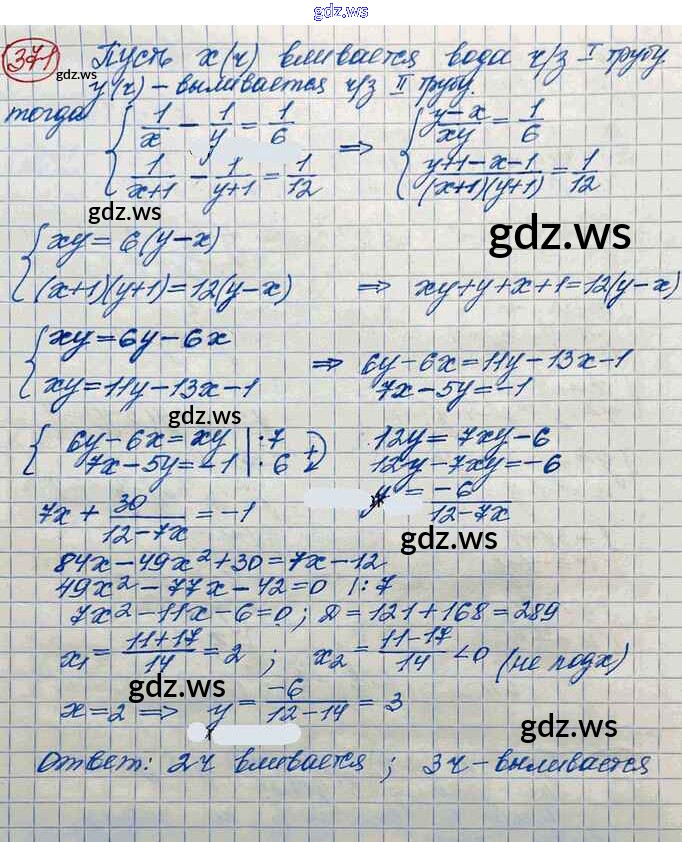 gdz.ws
371 Пусть x(ч) вливается вода ч/з I трубу.
gdz.ws
y(ч) - выливается ч/з II трубу.
тогда { 1/x - 1/y = 1/6 ⇒ { (y-x)/xy = 1/6
1/(x+1) - 1/(y+1) = 1/12 (y+1-x-1)/((x+1)(y+1)) = 1/12
gdz.ws
gdz.ws
{ xy = 6(y-x)
(x+1)(y+1) = 12(y-x) ⇒ xy+y+x+1=12(y-x)
{ xy = 6y-6x
xy = 11y-13x-1 ⇒ 6y-6x=11y-13x-1
7x-5y=-1
gdz.ws
{ 6y-6x=xy |·7 + 12y = 7xy-6
7x-5y=-1 |·6 12y-7xy=-6
7x + 30/(12-7x) = -1 y = -6/(12-7x)
gdz.ws
84x-49x²+30=7x-12
49x²-77x-42=0 |:7
7x²-11x-6=0; D=121+168=289
x₁ = (11+17)/14 = 2; x₂ = (11-17)/14 <0 (не подх)
gdz.ws
x=2 ⇒ y = -6/(12-14) = 3
gdz.ws
Ответ: 2ч вливается; 3ч-выливается
gdz.ws